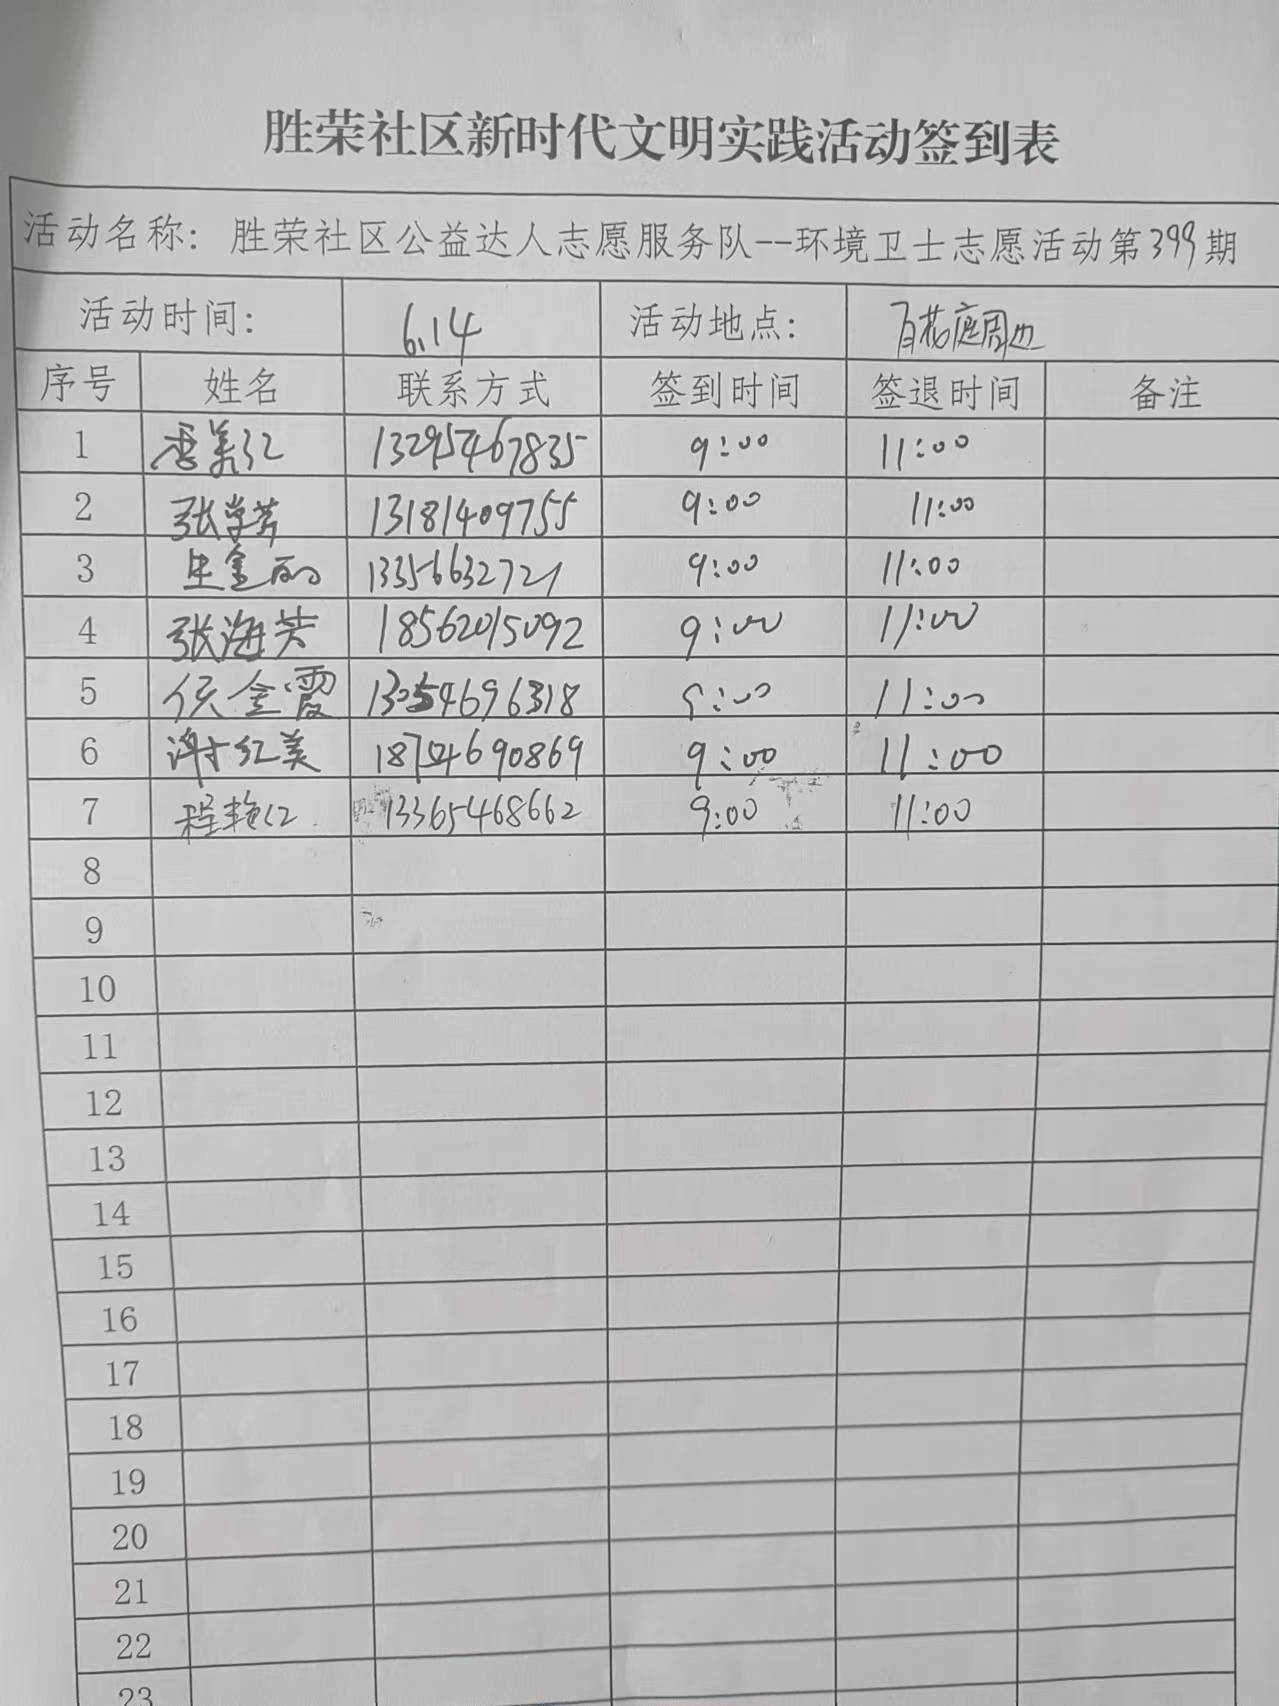 胜荣社区新时代文明实践活动签到表
活动名称：胜荣社区公益达人志愿服务队--环境卫士志愿活动第399期
活动时间： 6.14 活动地点： 百花庭周边
序号 姓名 联系方式 签到时间 签退时间 备注
1 美红 13295467835 9:00 11:00
2 张学芳 13181409755 9:00 11:00
3 生金丽 13356632721 9:00 11:00
4 张海芳 18562015092 9:00 11:00
5 侯金霞 13054696318 9:00 11:00
6 谢红美 9:00 11:00
7 程艳红 13365468662 9:00 11:00
8
9
10
11
12
13
14
15
16
17
18
19
20
21
22
23